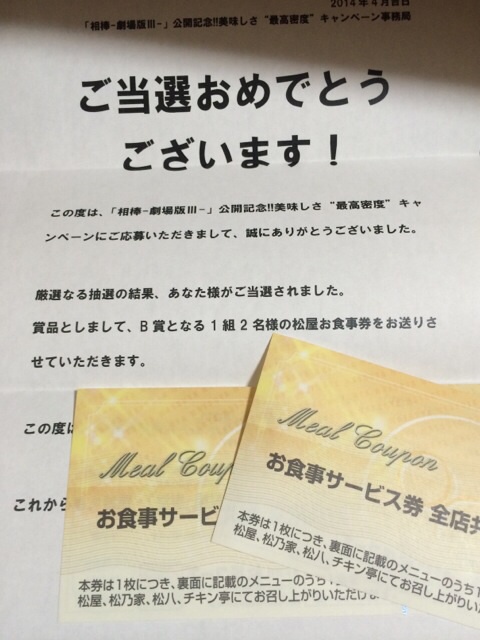 2014年4月吉日
「相棒-劇場版Ⅲ-」公開記念!!美味しさ“最高密度”キャンペーン事務局
ご当選おめでとう
ございます！
この度は、「相棒-劇場版Ⅲ-」公開記念!!美味しさ“最高密度”キャ
ンペーンにご応募いただきまして、誠にありがとうございました。
厳選なる抽選の結果、あなた様がご当選されました。
賞品としまして、B賞となる1組2名様の松屋お食事券をお送りさ
せていただきます。
この度は
これから
Meal Coup
お食事サービ
本券は1枚につき、裏面に記載のメニューのうち1
松屋、松乃家、松八、チキン亭にてお召し上がりいただけ
Meal Coupon
お食事サービス券 全店共
本券は1枚につき、裏面に記載のメニューのうち1
松屋、松乃家、松八、チキン亭にてお召し上がりいただ